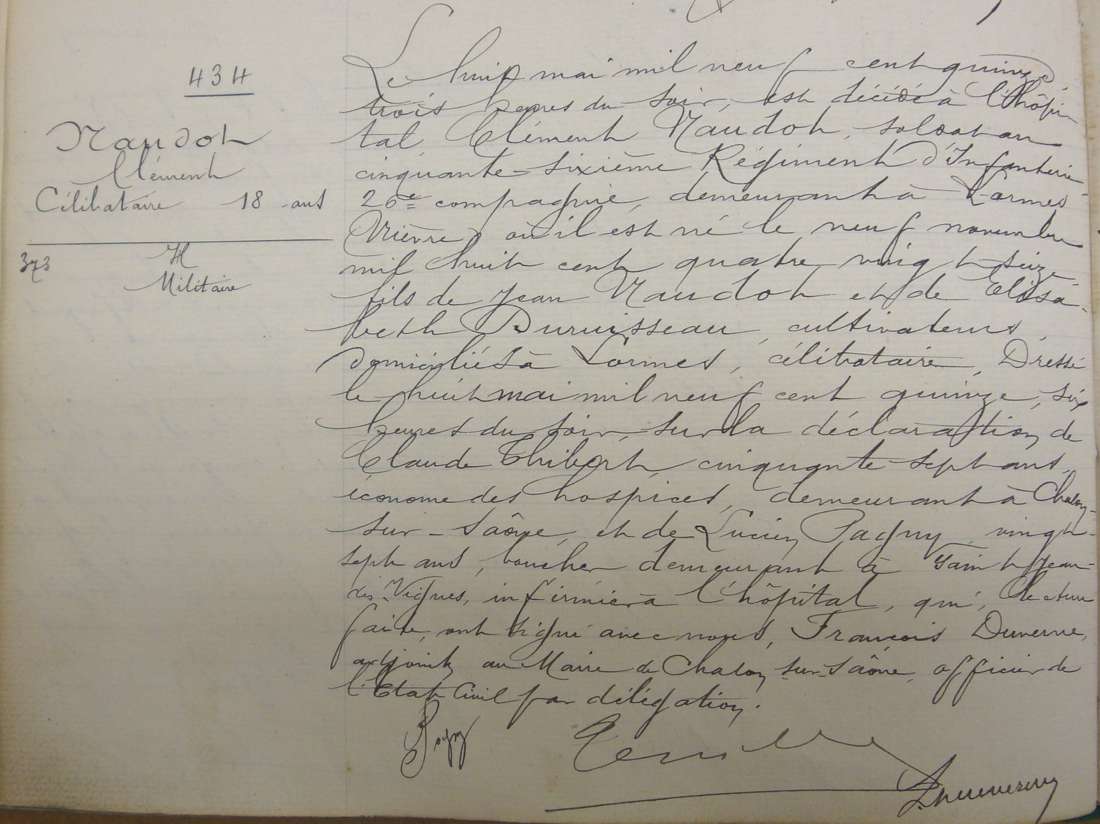 434
Naudot
Clément
Célibataire 18 ans
373
H
Militaire
Le huit mai mil neuf cent quinze
trois heures du soir, est décédé à l'hôpi-
tal Clément Naudot, soldat au
cinquante-sixième Régiment d'Infanterie
26e compagnie, demeurant à Lormes
(Nièvre) où il est né le neuf novembre
mil huit cent quatre vingt seize
fils de Jean Naudot et de Elisa-
beth Duruisseau, cultivateurs
domiciliés à Lormes, célibataire. Dressé
le huit mai mil neuf cent quinze, six
heures du soir, sur la déclaration de
Claude Thibert, cinquante-sept ans,
économe des hospices, demeurant à Chalon-
sur-Saône, et de Lucien Pagny, vingt-
sept ans, boucher demeurant à Saint Jean-
des-Vignes, infirmier à l'hôpital, qui, lecture
faite, ont signé avec nous, François Duverne,
adjoint au Maire de Chalon-sur-Saône, officier de
l'Etat Civil par délégation.